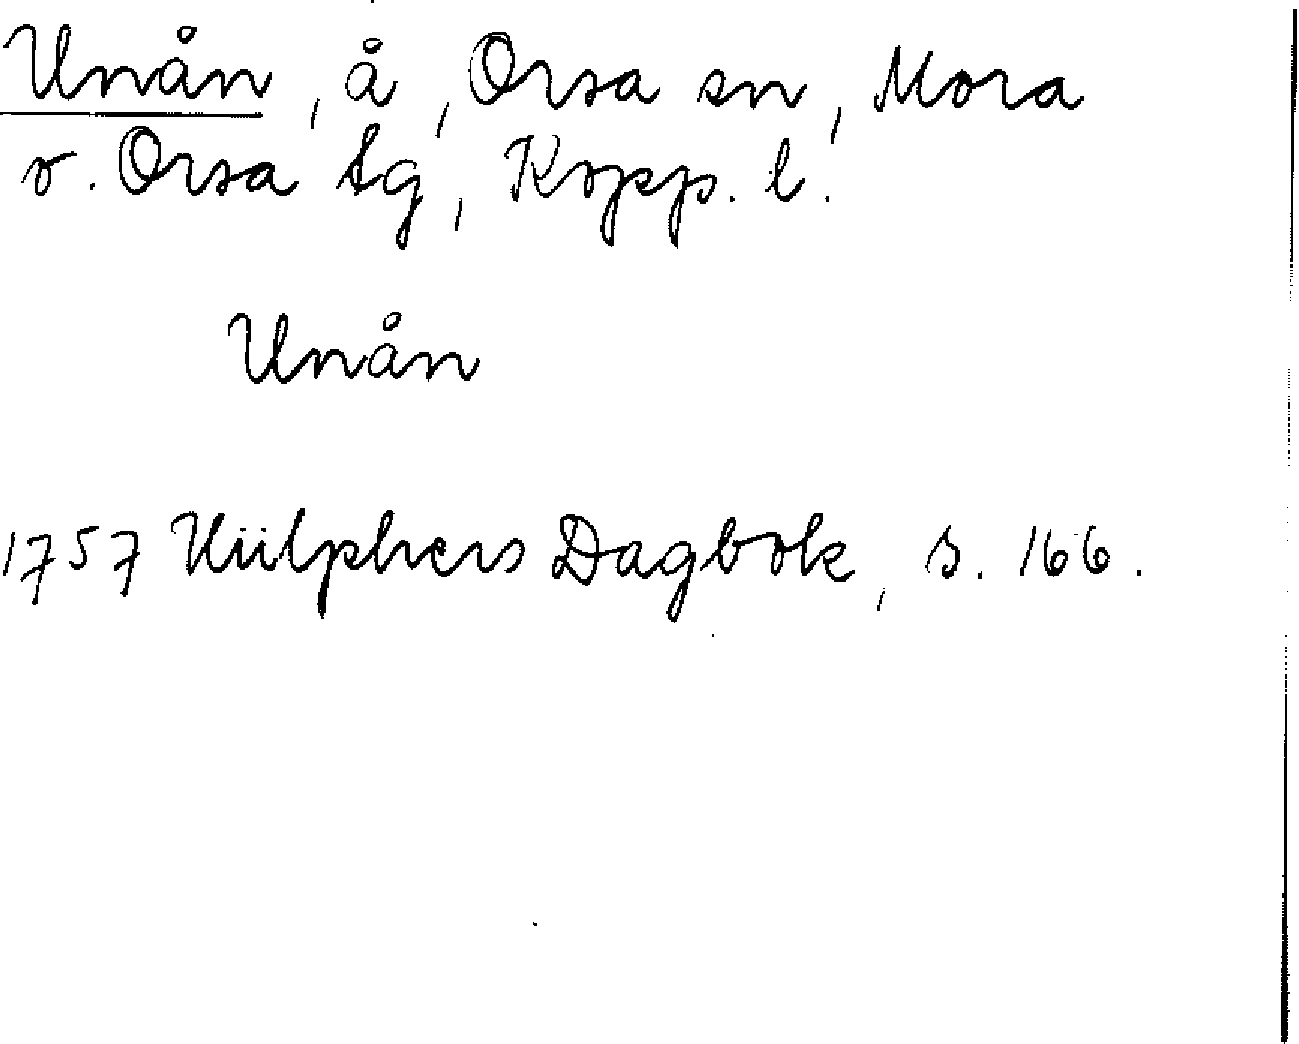 Unån, å, Orsa sn, Mora
o. Orsa tg, Kopp. l.
Unån
1757 Hülphers Dagbok, s. 166.